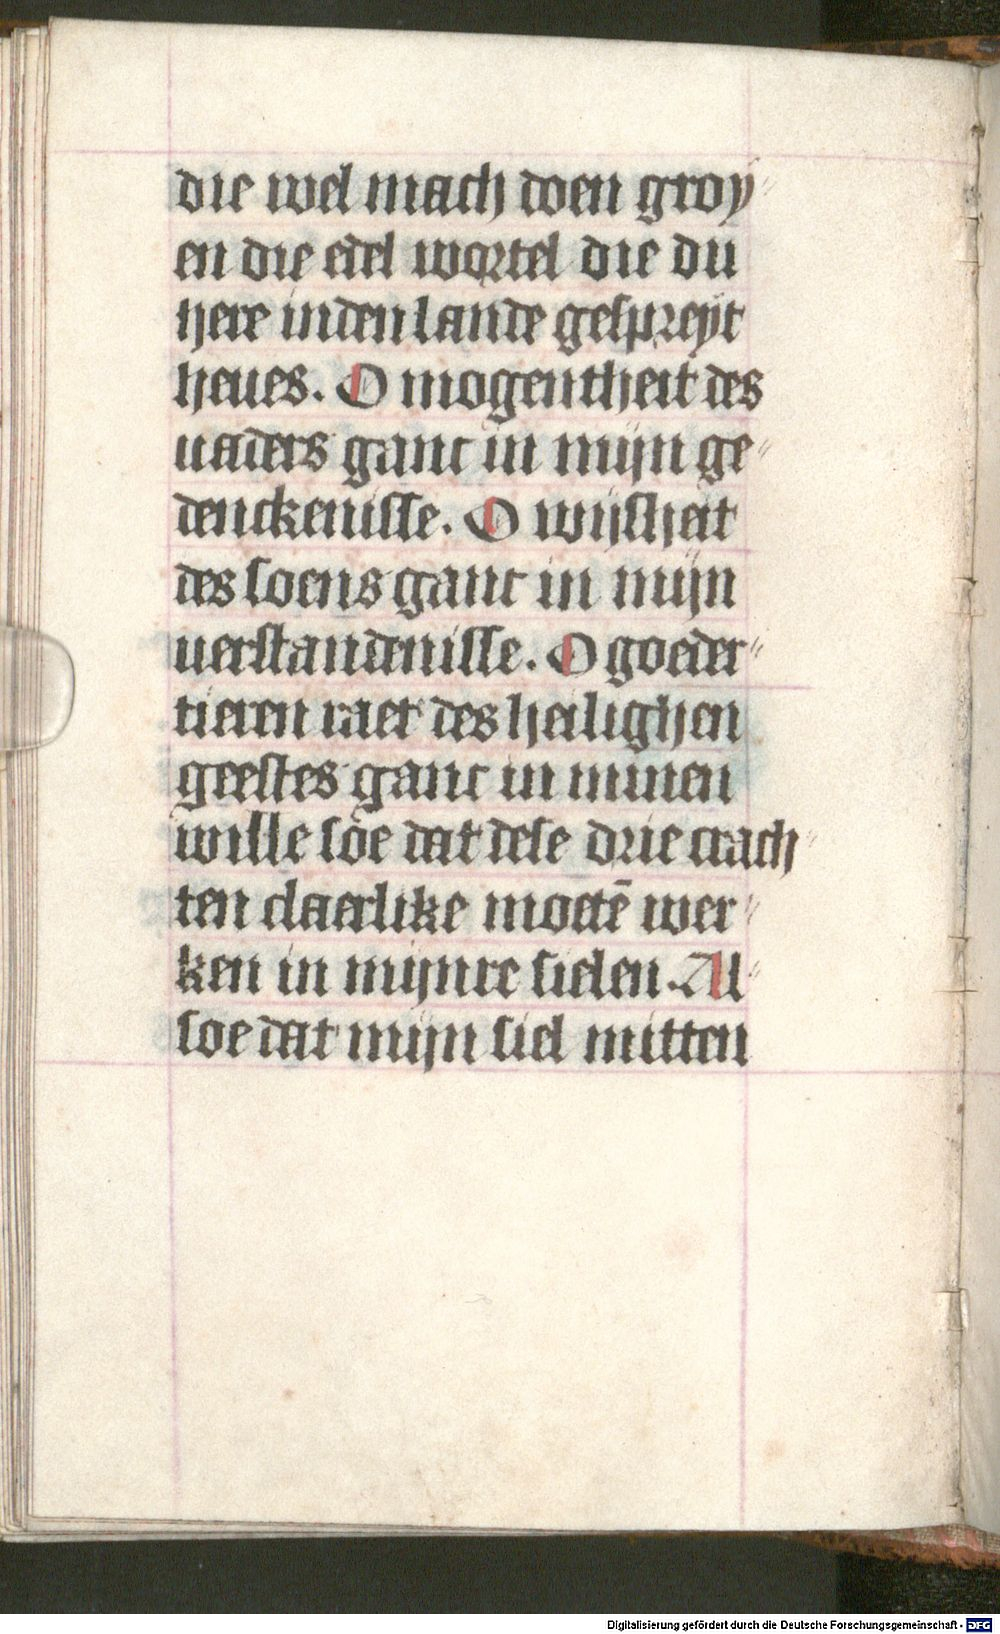 die wel mach doen groy〃
en die edel wortel die du
here inden lande gespreyt
heues. O mogentheit des
uaders ganc in mijn ge〃
denckenisse. O wijsheit
des soens ganc in mijn
uerstandenisse. O goeder〃
tieren raet des heilighen
geestes ganc in minen
wille soe dat dese drie crach〃
ten claerlike moetē wer〃
ken in mijnre sielen. Al〃
soe dat mijn siel mitten
Digitalisierung gefördert durch die Deutsche Forschungsgemeinschaft - DFG